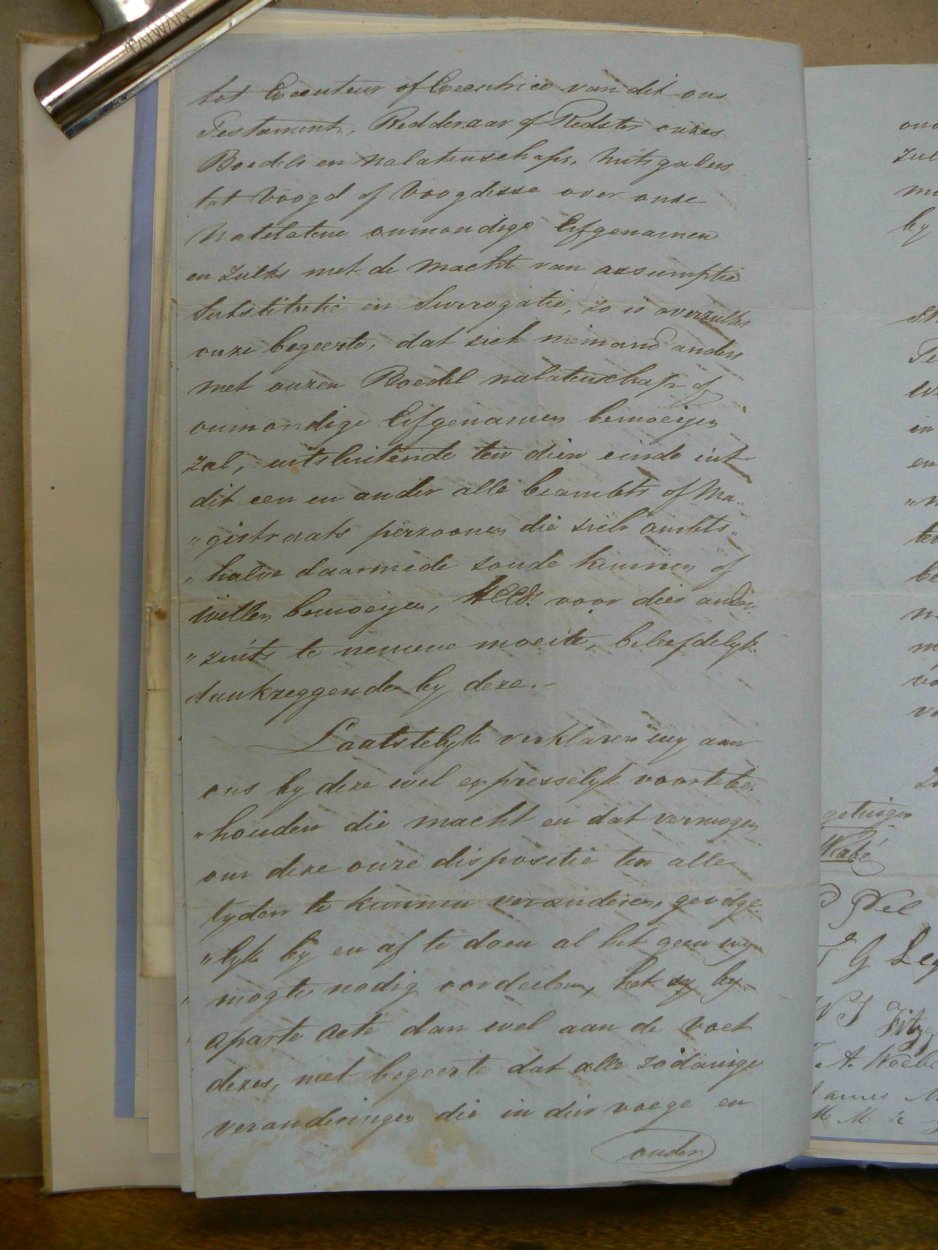 TAIWAN
tot Executeur of Executrice van dit ons
Testament, Redderaar of Redster onzes
Boedels en nalatenschaps, mitsgaders
tot Voogd of Voogdesse over onze
natelatene onmondige Erfgenamen
en zulks met de macht van assumptie
substitutie en surrogatie, zo is overzulks
onze begeerte, dat zich niemand anders
met onzen Boedel nalatenschap of
onmondige Erfgenamen bemoeijen
zal, uitsluitende ten dien einde uit
dit een en ander alle beambts of Ma-
"gistraats perzoonen die zich ambts-
"halve daarmede zoude kunnen of
willen bemoeyen, voor deer ander-
"zints te nemene moeite, beleefdelyk
dankzeggende by deze.-
Laatstelyk verklaren wy aan
ons by deze wel expresselyk voortebe-
"houden die macht en dat vermogen
om deze onze dispositie ten alle
tyden te kunnen veranderen, gevolge-
"lyk by en af te doen al het geen wy
mogte nodig oordeelen, het zy by
aparte acte dan wel aan de voet
dezes, met begeerte dat alle zodanige
veranderingen die in dier voege en
onder
getuigen
P Nel